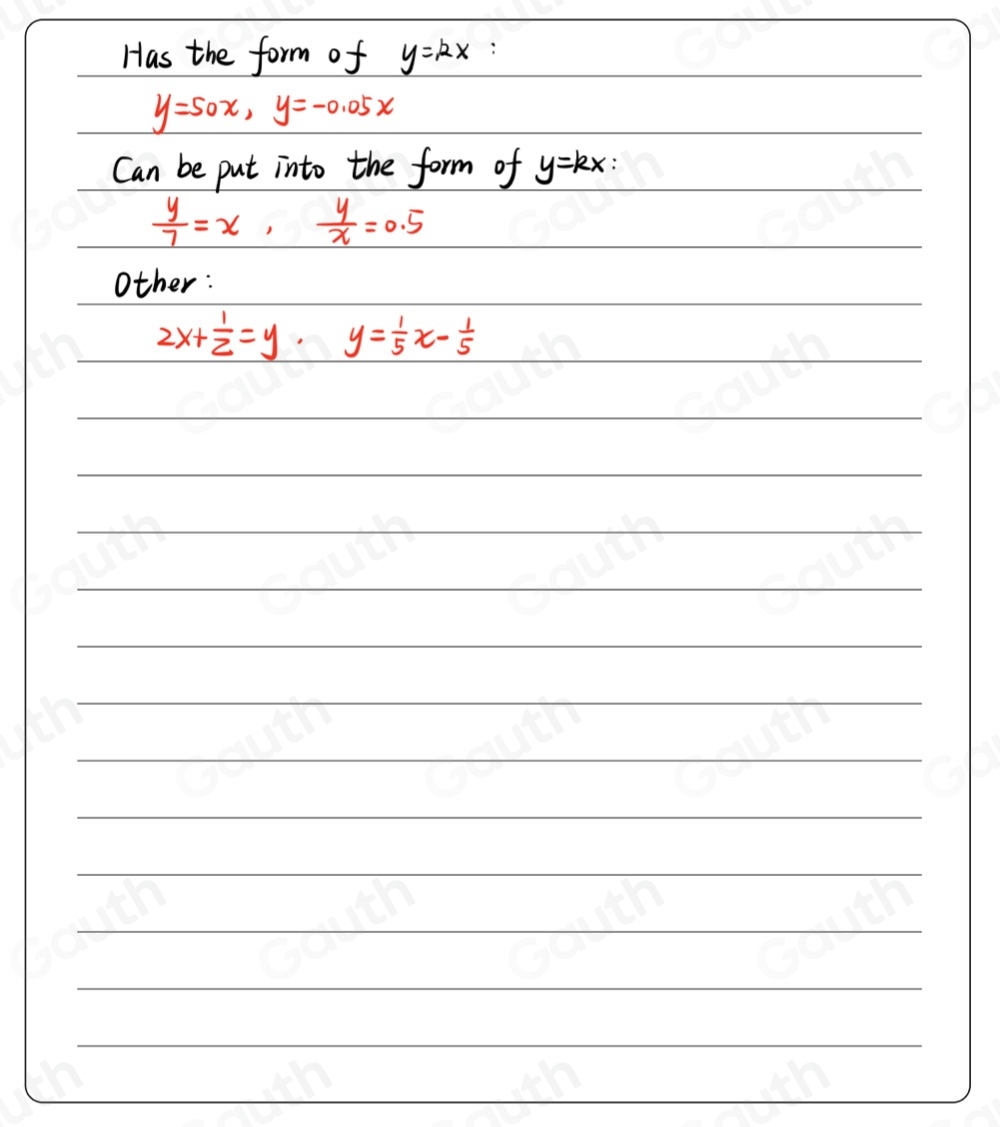 Has the form of y=kx :
y=50x, y=-0.05x
Can be put into the form of y=kx:
y/7 = x , y/x = 0.5
Other:
2x+1/2=y . y=1/5x-1/5